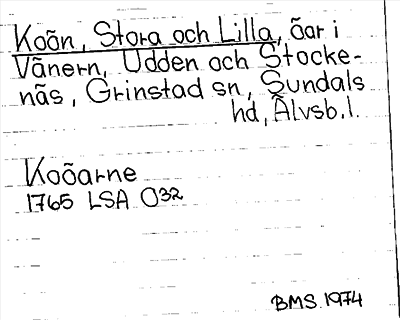 Koön, Stora och Lilla, öar i
Vänern, Udden och Stocke-
näs, Grinstad sn, Sundals
hd, Älvsb. l.
Kooarne
1765 LSA O32
BMS 1974